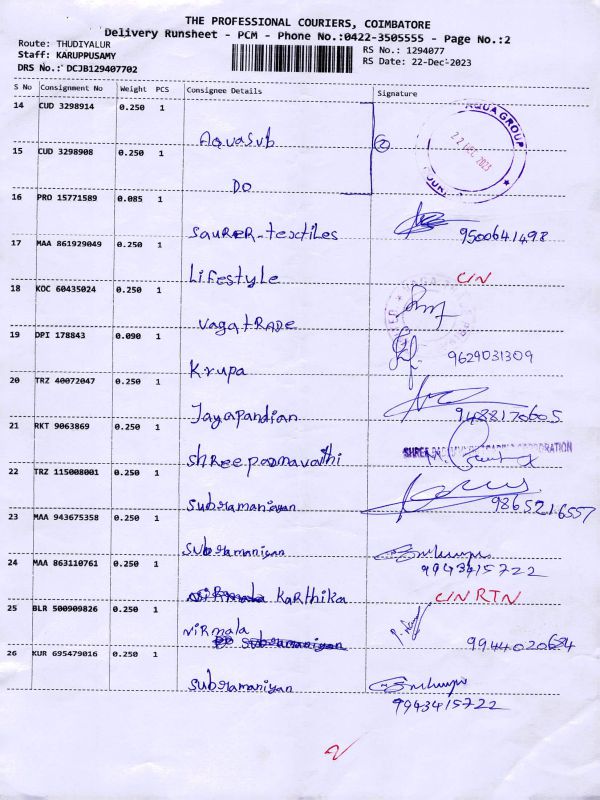 THE PROFESSIONAL COURIERS, COIMBATORE
Delivery Runsheet - PCM - Phone No.:0422-3505555 - Page No.:2
Route: THUDIYALUR
Staff: KARUPPUSAMY
DRS No.: DCJB129407702
RS No.: 1294077
RS Date: 22-Dec-2023
S No Consignment No Weight PCS Consignee Details Signature
14 CUD 3298914 0.250 1 AquaSub
AQUA GROUP
2023
15 CUD 3298908 0.250 1 DO
16 PRO 15771589 0.085 1 SAURER-textiles 9500641498
17 MAA 861929049 0.250 1 Lifestyle C/N
18 KOC 60435024 0.250 1 vagatRADE
19 DPI 178843 0.090 1 Krupa 9629031309
20 TRZ 40072047 0.250 1 Jayapandian 9488170605
21 RKT 9063869 0.250 1 shreepadmavathi
22 TRZ 115008001 0.250 1 Subramaniyan 9865216557
23 MAA 943675358 0.250 1 Subramaniyan 9943415722
24 MAA 863110761 0.250 1 Karthika C/N RTN
25 BLR 500909826 0.250 1 NiRmala
26 KUR 695479016 0.250 1 Subramaniyan 9943415722